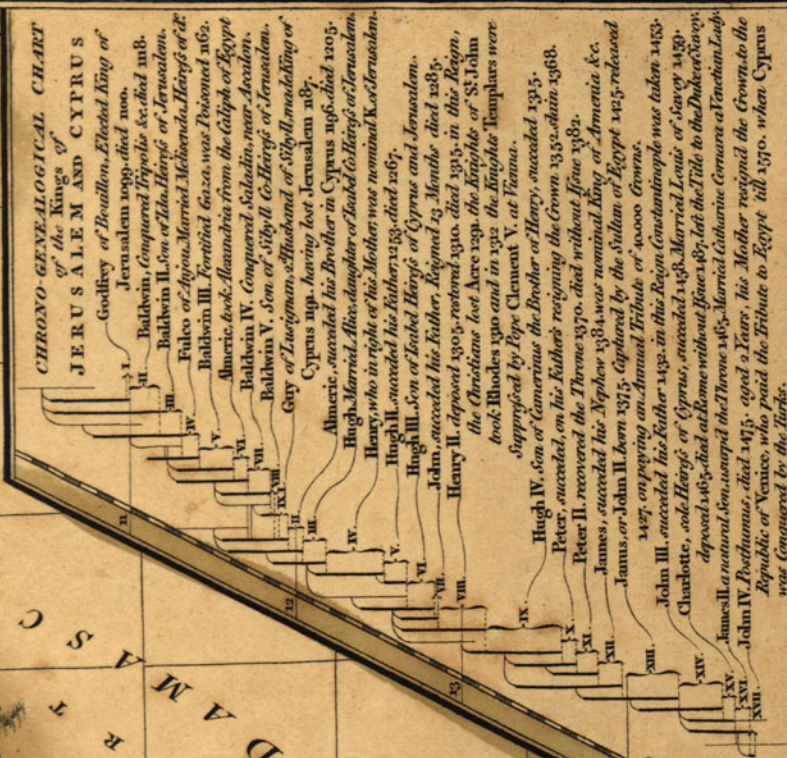 CHRONO-GENEALOGICAL CHART
of the Kings of
JERUSALEM AND CYPRUS
Godfrey of Bouillon, Elected King of
Jerusalem 1099, died 1100.
Baldwin, Conquered Tripolis &c. died 1118.
Baldwin II. Son of Ida Heiress of Jerusalem.
Fulco of Anjou, Married Melisenda, Heiress of do.
Baldwin III. Fortified Gaza, was Poisoned 1162.
Almeric, took Alexandria from the Caliph of Egypt
Baldwin IV. Conquered Saladin, near Ascalon.
Baldwin V. Son of Sibyll CoHeiress of Jerusalem.
Guy of Lusignan, 2d. Husband of Sibyll, made King of
Cyprus 1191. having lost Jerusalem 1187.
Almeric, succeded his Brother in Cyprus 1196. died 1205.
Hugh, Married Alice, daughter of Isabel CoHeiress of Jerusalem.
Henry, who in right of his Mother, was nominal K. of Jerusalem.
Hugh II. succeded his Father, 1253. died 1267.
Hugh III. Son of Isabel Heiress of Cyprus and Jerusalem.
John, succeded his Father, Reigned 13 Months died 1285.
Henry II. deposed 1305. restord 1310. died 1315. in this Reign,
the Christians lost Acre 1291. the Knights of St. John
took Rhodes 1310 and in 1312 the Knights Templars were
Suppressed by Pope Clement V. at Vienna.
Hugh IV. Son of Camerinus the Brother of Henry, succeded 1315.
Peter, succeded, on his Father's resigning the Crown 1352. slain 1368.
Peter II. recovered the Throne 1370. died without Issue 1382.
James, succeded his Nephew 1384. was nominal King of Armenia &c.
Janus, or John II. born 1375. Captured by the Sultan of Egypt 1425. released
1427. on paying an Annual Tribute of 40,000 Crowns.
John III. succeded his Father 1432. in this Reign Constantinople was taken 1453.
Charlotte, sole Heiress of Cyprus, succeded 1458. Married Louis of Savoy 1459.
deposed 1463. died at Rome without Issue 1487. left the Title to the Duke of Savoy.
James II. a natural Son, usurp'd the Throne 1463. Married Catharine Cornara a Venetian Lady.
John IV. Posthumus, died 1475. aged 2 Years, his Mother resign'd the Crown, to the
Republic of Venice, who paid the Tribute to Egypt till 1570. when Cyprus
was Conquered by the Turks.
I.
II.
III.
IV.
V.
VI.
VII.
VIII.
IX.
I.
II.
III.
IV.
V.
VI.
VII.
VIII.
IX.
X.
XI.
XII.
XIII.
XIV.
XV.
XVI.
XVII.
11
12
13
DAMASC
R T